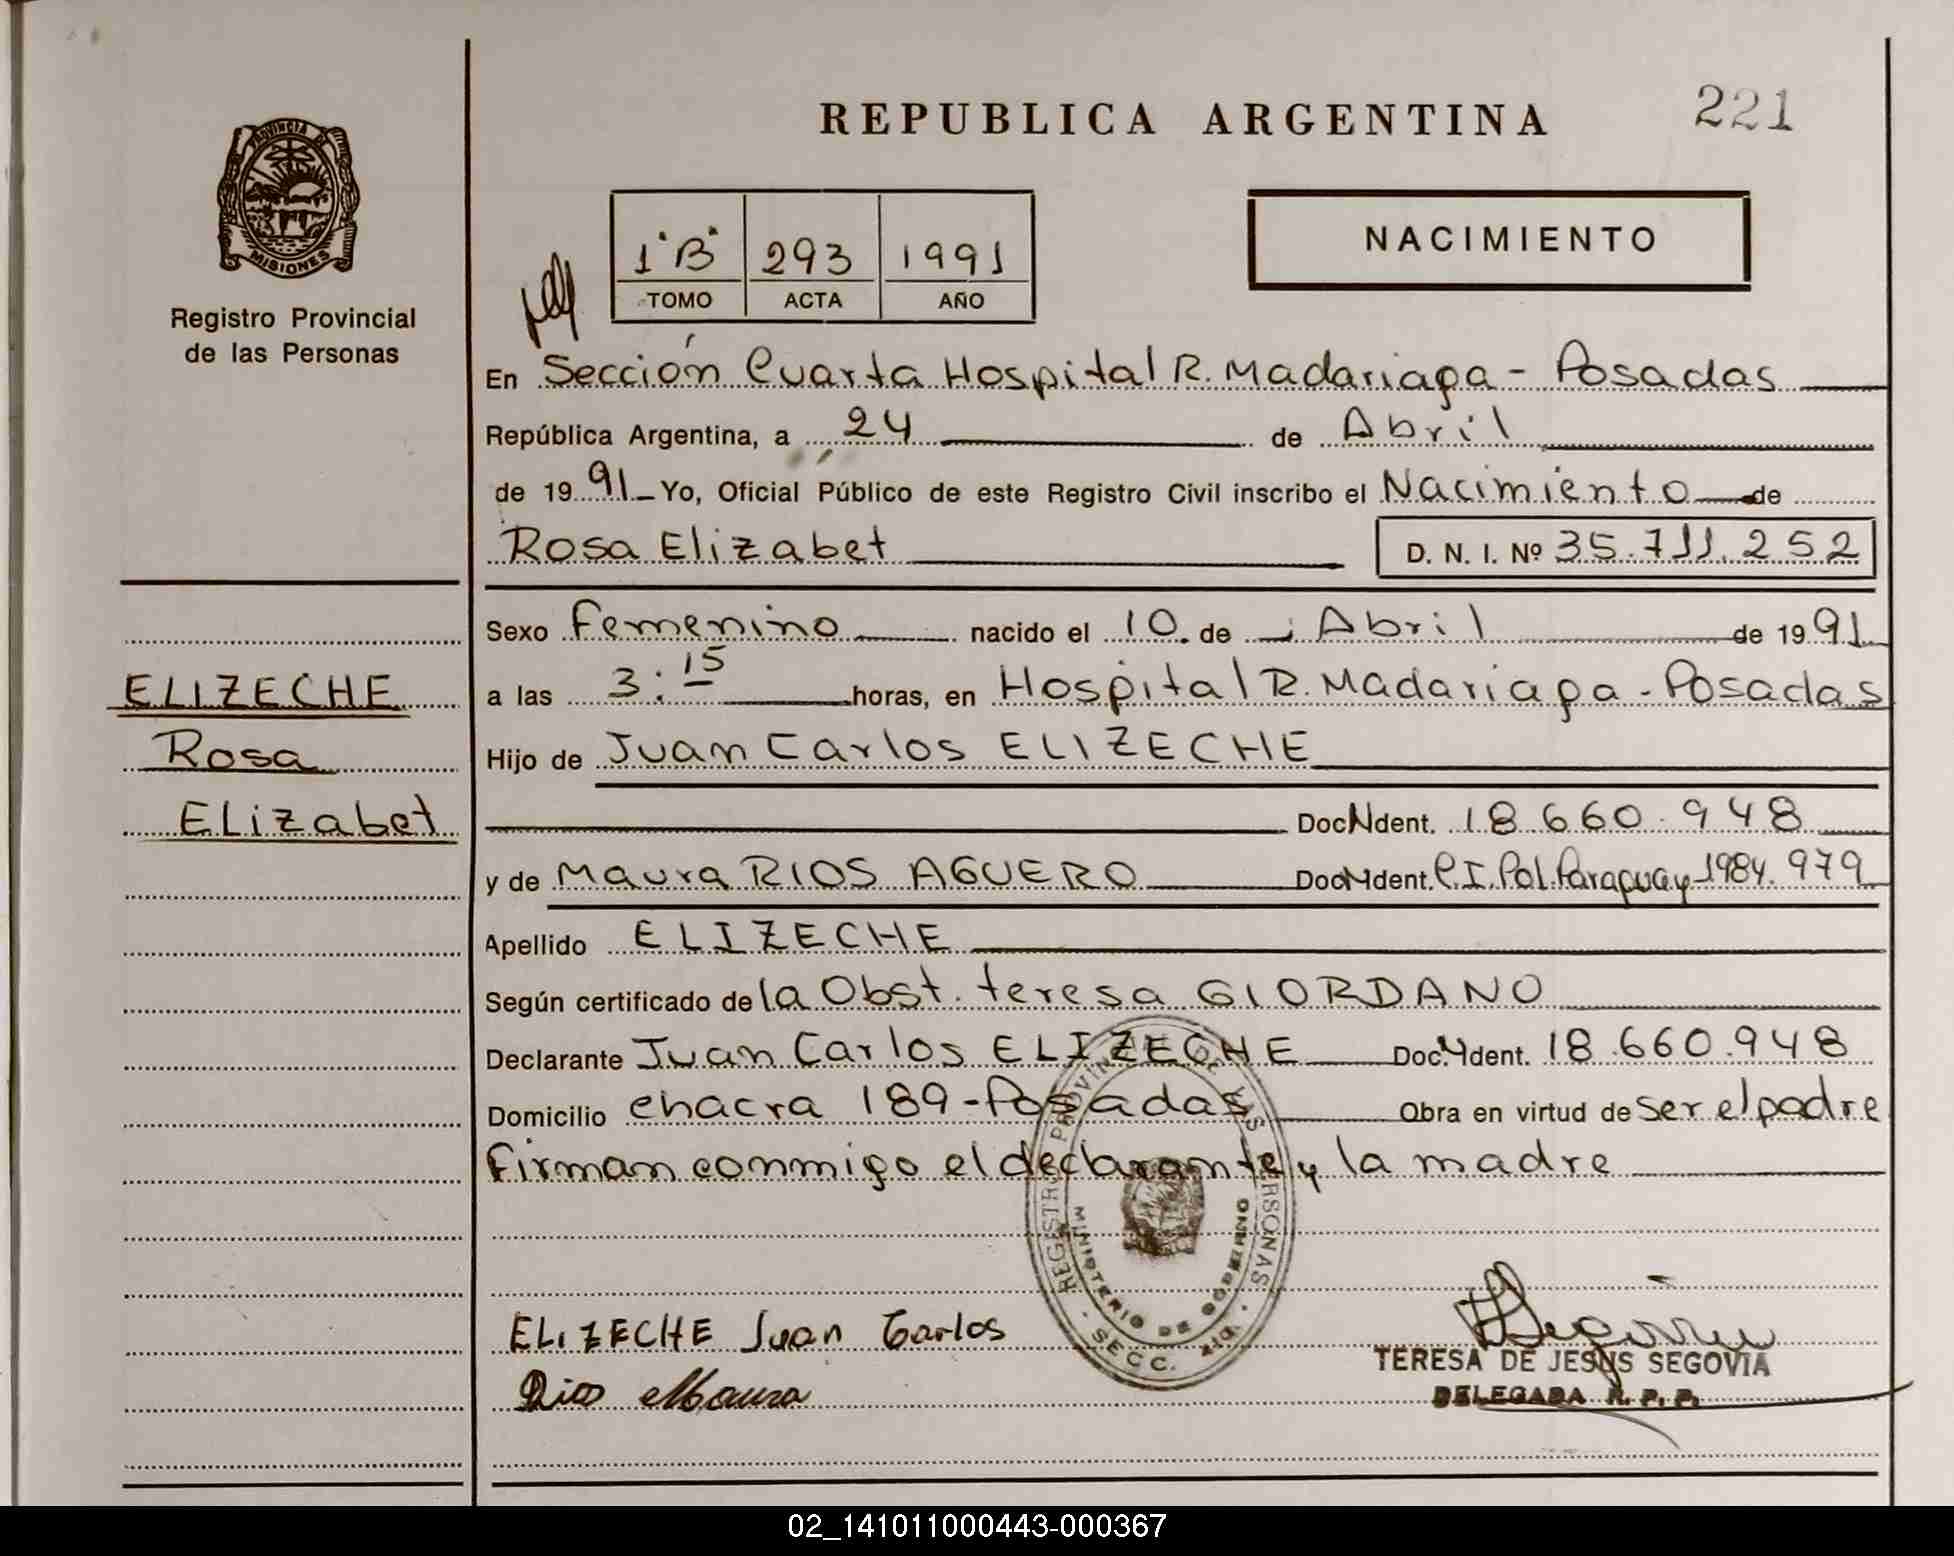 REPUBLICA ARGENTINA
221
PROVINCIA DE
MISIONES
Registro Provincial
de las Personas
1 "B" 293 1991
TOMO ACTA AÑO
NACIMIENTO
En Sección Cuarta Hospital R. Madariaga - Posadas
República Argentina, a 24 de Abril
de 1991 Yo, Oficial Público de este Registro Civil inscribo el Nacimiento de
Rosa Elizabet D. N. I. Nº 35.711.252
Sexo Femenino nacido el 10 de Abril de 1991
ELIZECHE
a las 3:15 horas, en Hospital R. Madariaga - Posadas
Rosa
Hijo de Juan Carlos ELIZECHE
Elizabet
Doc. Ident. 18.660.948
y de Maura RIOS AGUERO Doc. Ident. C.I. Pol. Paraguay 1984.979
Apellido ELIZECHE
Según certificado de la Obst. teresa GIORDANO
Declarante Juan Carlos ELIZECHE Doc. Ident. 18.660.948
Domicilio chacra 189 - Posadas Obra en virtud de ser el padre
firman conmigo el declarante y la madre
REGISTRO PROVINCIAL DE LAS PERSONAS
MINISTERIO DE GOBIERNO
SECC. 4ta
ELIZECHE Juan Carlos
Rios Maura
Segovia
TERESA DE JESUS SEGOVIA
DELEGADA R. P. P.
02_141011000443-000367